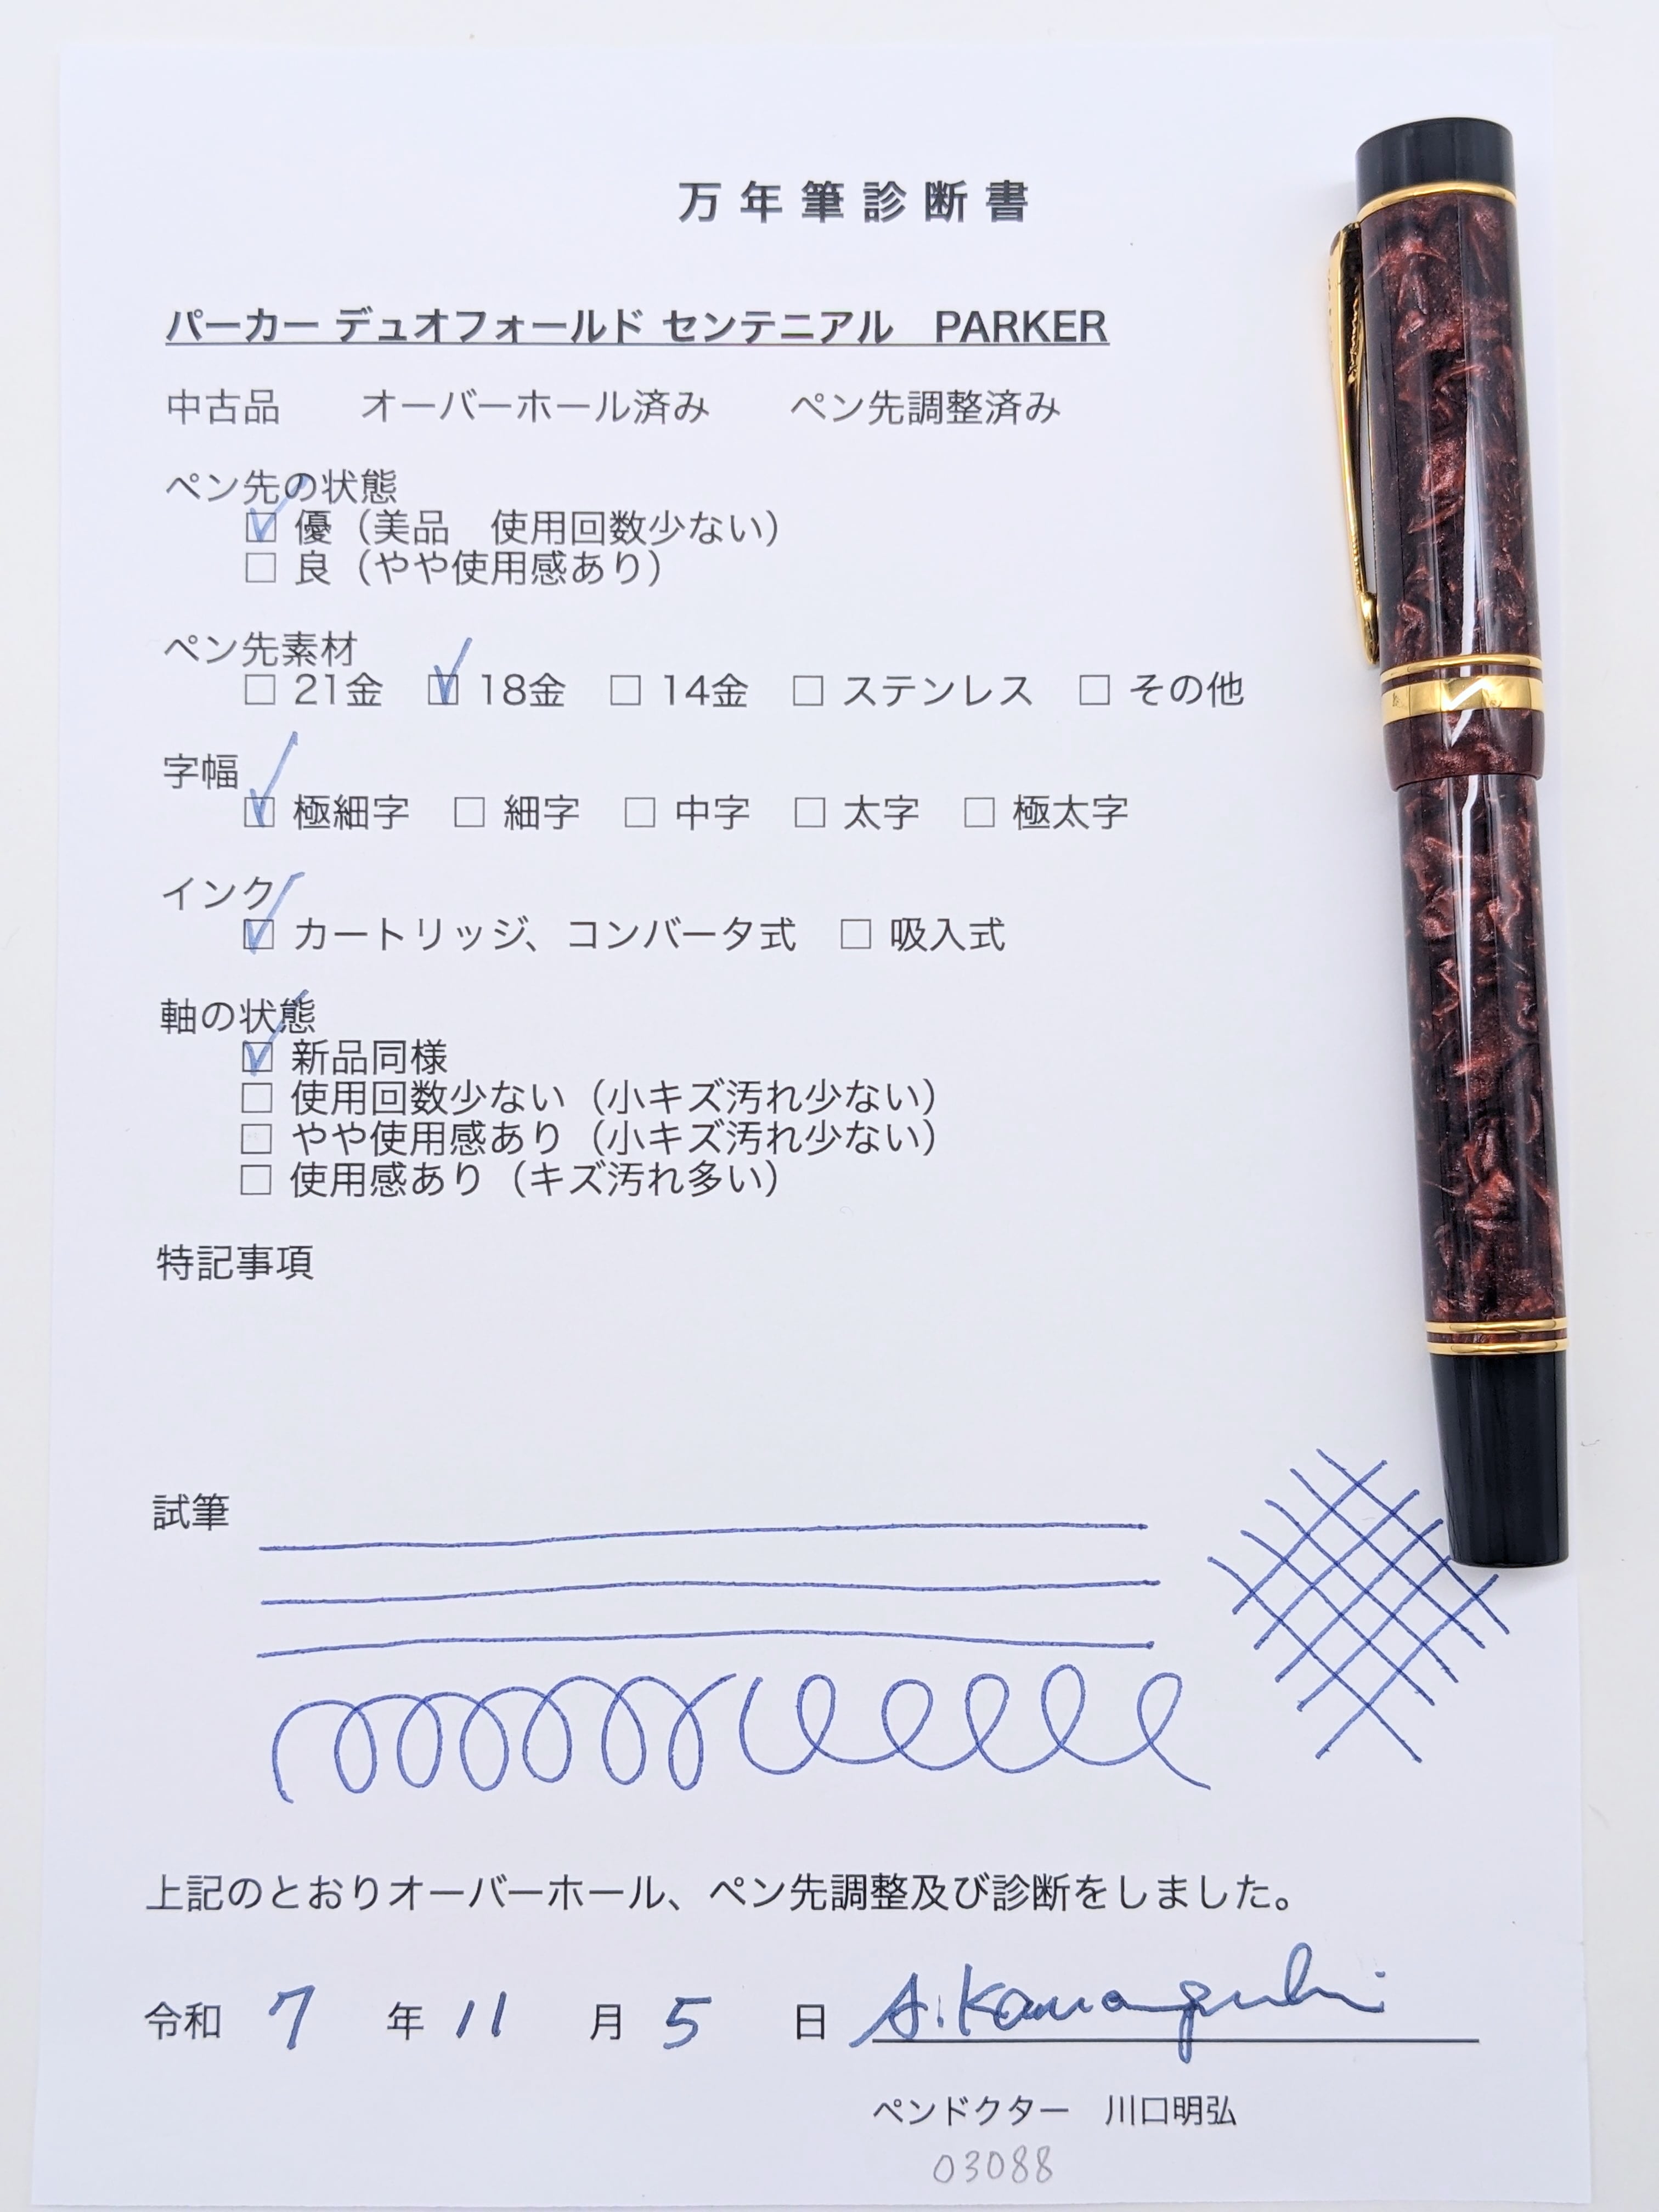 万年筆診断書
パーカー デュオフォールド センテニアル　PARKER
中古品　　オーバーホール済み　　ペン先調整済み
ペン先の状態
☑ 優（美品　使用回数少ない）
□ 良（やや使用感あり）
ペン先素材
□ 21金　☑ 18金　□ 14金　□ ステンレス　□ その他
字幅
☑ 極細字　□ 細字　□ 中字　□ 太字　□ 極太字
インク
☑ カートリッジ、コンバータ式　□ 吸入式
軸の状態
☑ 新品同様
□ 使用回数少ない（小キズ汚れ少ない）
□ やや使用感あり（小キズ汚れ少ない）
□ 使用感あり（キズ汚れ多い）
特記事項
試筆
上記のとおりオーバーホール、ペン先調整及び診断をしました。
令和 7 年 11 月 5 日 A.Kawaguchi
ペンドクター　川口明弘
03088